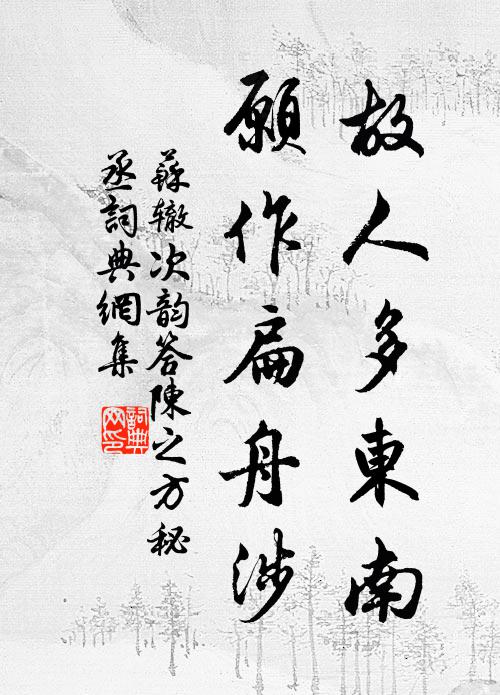 故人多東南
願作扁舟涉
蘇辙次韵答陳之方秘
丞詞典網集
詞典网印